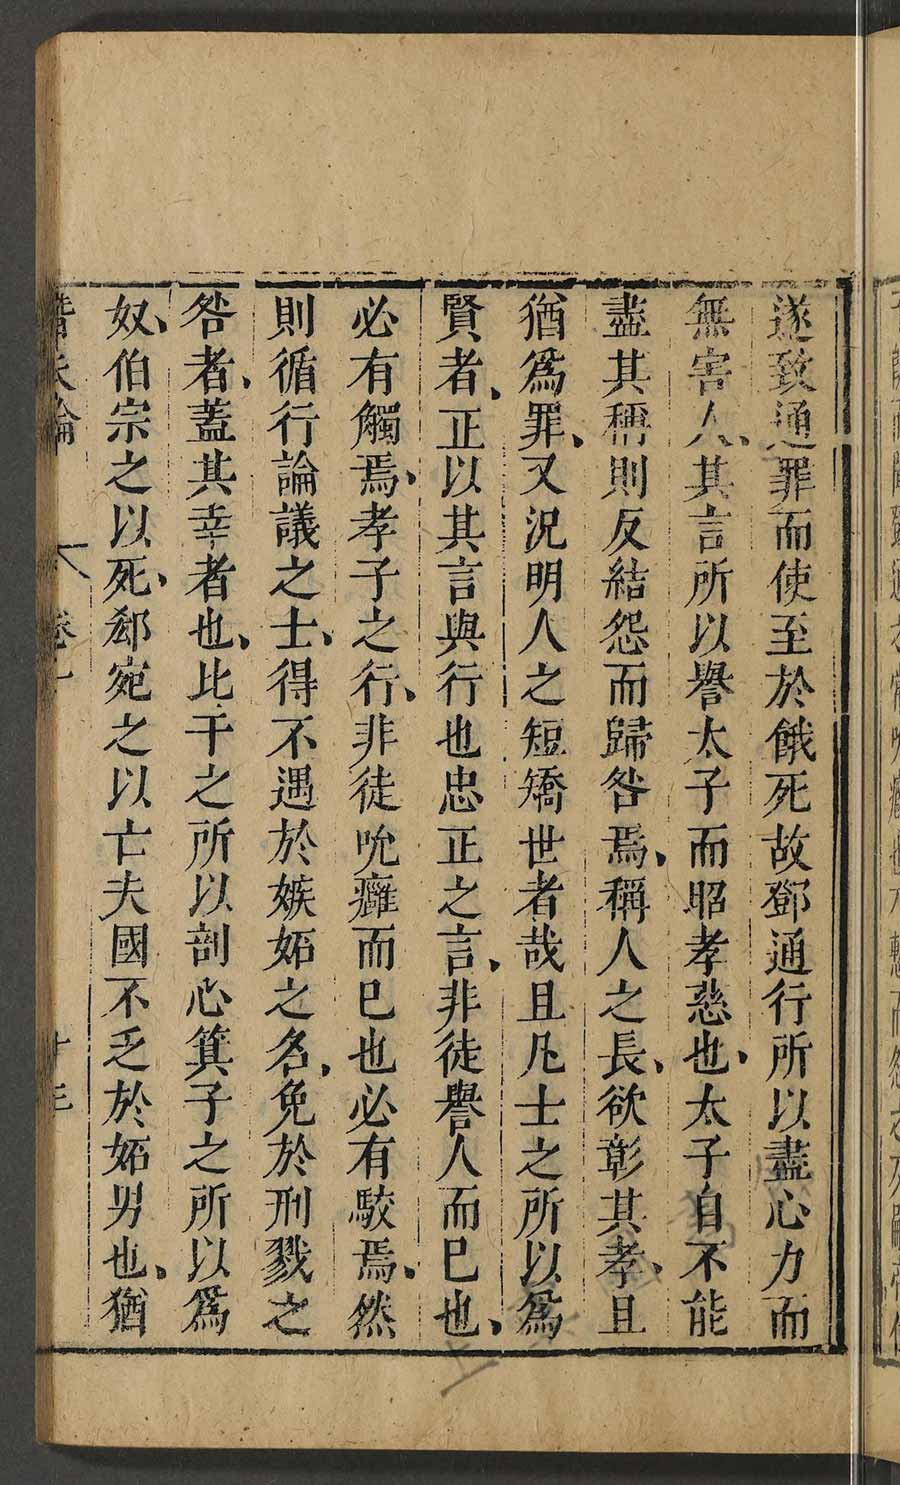 遂致通罪而使至於餓死故鄧通行所以盡心力而
無害人、其言所以譽太子而昭孝慈也、太子自不能
盡其稱則反結怨而歸咎焉、稱人之長、欲彰其孝、且
猶爲罪、又況明人之短矯世者哉且凡士之所以爲
賢者、正以其言與行也忠正之言、非徒譽人而巳也、
必有觸焉、孝子之行、非徒吮癰而巳也必有駮焉、然
則循行論議之士、得不遇於嫉妬之名、免於刑戮之
咎者、蓋其幸者也、比干之所以剖心箕子之所以爲
奴、伯宗之以死、郄宛之以亡夫國不乏於妬男也、猶
潛夫論 卷一